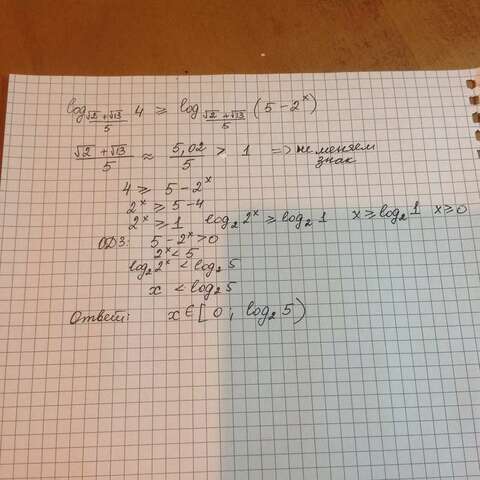 log_{(√2 + √13)/5} 4 ≥ log_{(√2 + √13)/5} (5 - 2^x)
(√2 + √13)/5 ≈ 5,02/5 > 1 => не меняем
знак
4 ≥ 5 - 2^x
2^x ≥ 5 - 4
2^x ≥ 1 log_2 2^x ≥ log_2 1 x ≥ log_2 1 x ≥ 0
ОДЗ: 5 - 2^x > 0
2^x < 5
log_2 2^x < log_2 5
x < log_2 5
Ответ: x ∈ [0 ; log_2 5)